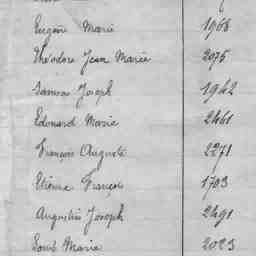 Eugène Marie 1968
Théodore Jean Marie 2075
Samson Joseph 1942
Edouard Marie 2461
François Auguste 2271
Etienne François 1703
Augustin Joseph 2491
Louis Marie 2023